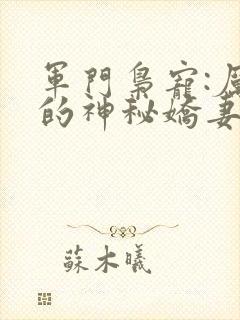 軍門梟寵:
的神秘嬌妻
蘇木曦